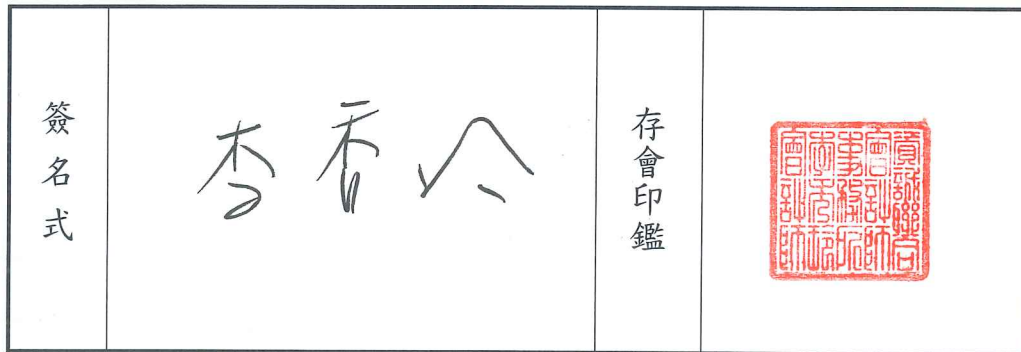 簽名式
李秀玲
存會印鑑
資誠聯合
會計師
事務所
李秀玲
會計師